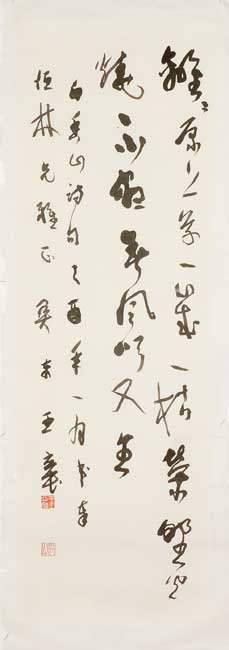 離〻原上草一歲一枯榮野火
燒不盡春風吹又生
白香山詩句乙酉年一月書奉
恒林兄雅正 吳東王